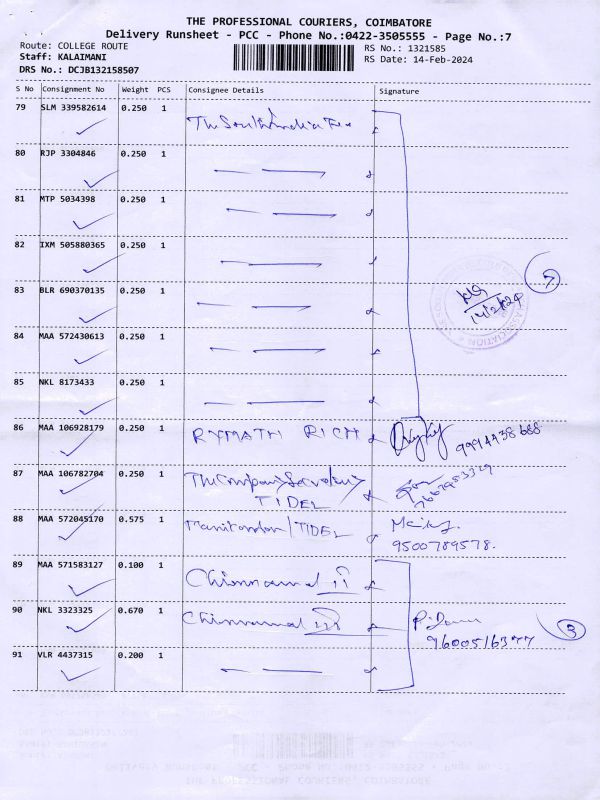 THE PROFESSIONAL COURIERS, COIMBATORE
Delivery Runsheet - PCC - Phone No.:0422-3505555 - Page No.:7
Route: COLLEGE ROUTE RS No.: 1321585
Staff: KALAIMANI RS Date: 14-Feb-2024
DRS No.: DCJB132158507
S No Consignment No Weight PCS Consignee Details Signature
79 SLM 339582614 0.250 1
The South India
80 RJP 3304846 0.250 1
81 MTP 5034398 0.250 1
82 IXM 505880365 0.250 1
7
83 BLR 690370135 0.250 1
14/2/24
ASSOCIATION
84 MAA 572430613 0.250 1
85 NKL 8173433 0.250 1
86 MAA 106928179 0.250 1 RYMATH RICH
9994438688
87 MAA 106782704 0.250 1 The Company Secretary
TIDEL
88 MAA 572045170 0.575 1 Manikandan/TIDEL
9500789578.
89 MAA 571583127 0.100 1 Chinnamal
90 NKL 3323325 0.670 1 Chinnamal
9600516377 3
91 VLR 4437315 0.200 1